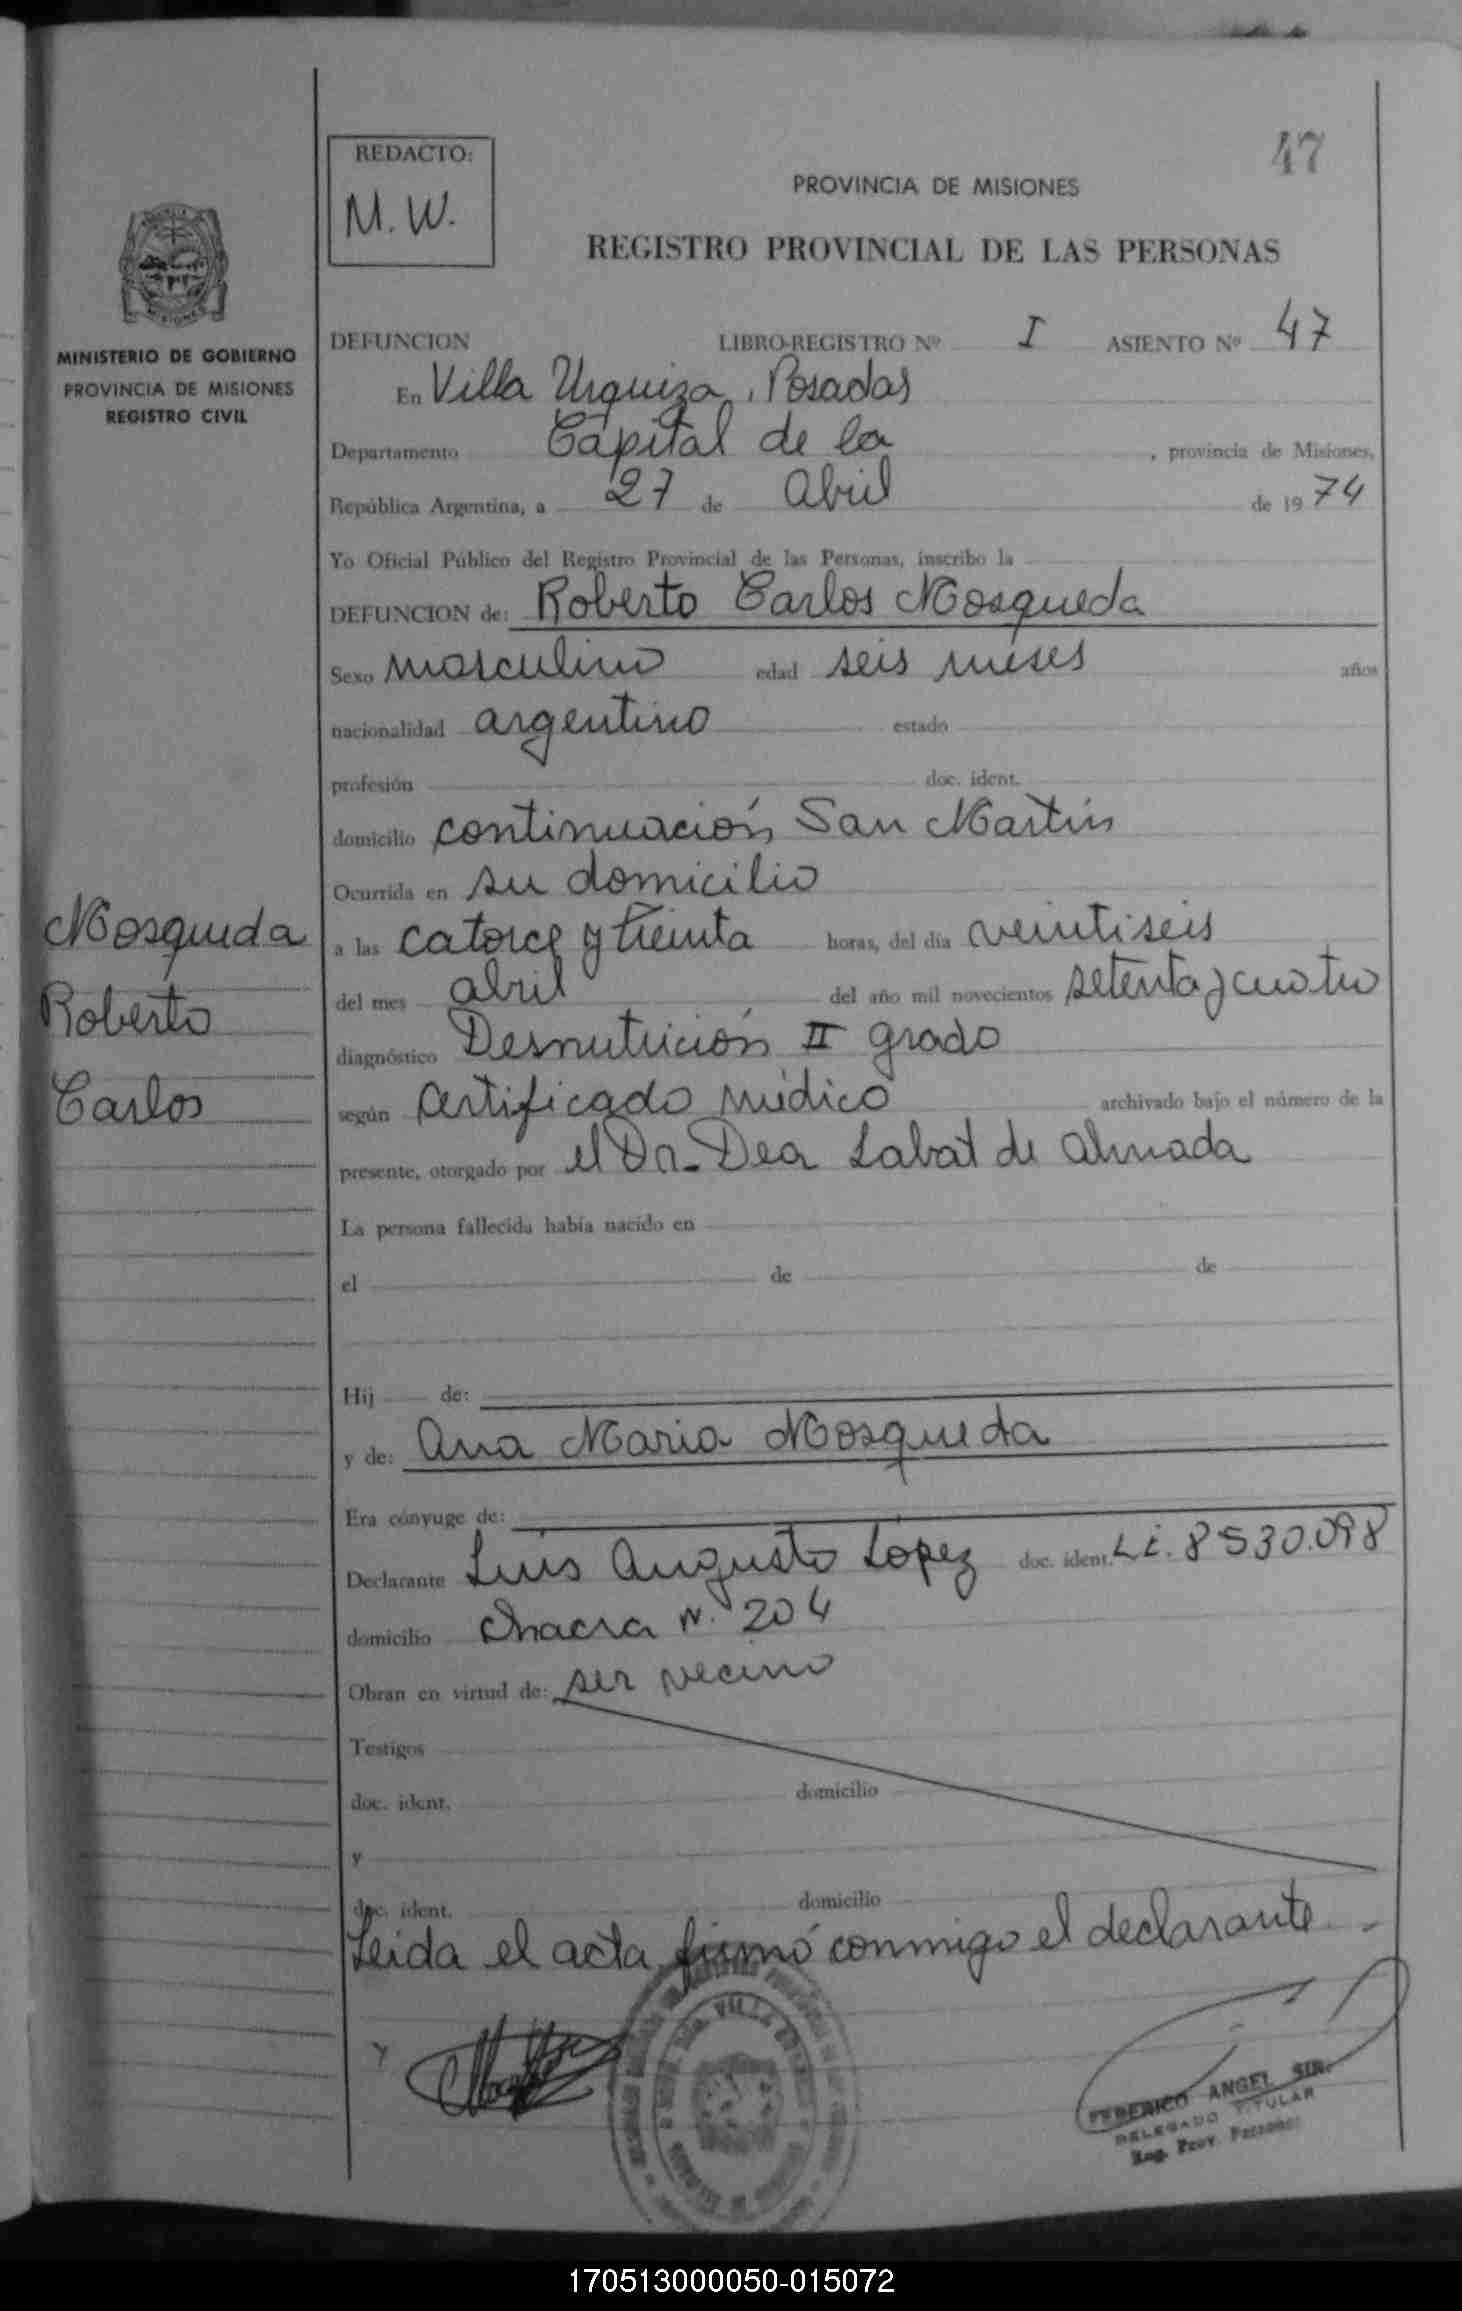 47
REDACTO:
M. W.
PROVINCIA DE MISIONES
REGISTRO PROVINCIAL DE LAS PERSONAS
MINISTERIO DE GOBIERNO
PROVINCIA DE MISIONES
REGISTRO CIVIL
DEFUNCION LIBRO-REGISTRO Nº I ASIENTO Nº 47
En Villa Urquiza, Posadas
Departamento Capital de la , provincia de Misiones,
República Argentina, a 27 de Abril de 1974
Yo Oficial Público del Registro Provincial de las Personas, inscribo la
DEFUNCION de: Roberto Carlos Mosqueda
Sexo masculino edad seis meses años
nacionalidad argentino estado
profesión doc. ident.
domicilio continuación San Martín
Ocurrida en su domicilio
Mosqueda
Roberto
Carlos
a las catorce y treinta horas, del día veintiseis
del mes abril del año mil novecientos setenta y cuatro
diagnóstico Desnutrición II grado
según certificado médico archivado bajo el número de la
presente, otorgado por el Dr. Dea Labat de Almada
La persona fallecida había nacido en
el de de
Hij de:
y de: Ana Maria Mosqueda
Era cónyuge de:
Declarante Luis Augusto López doc. ident. L.E. 8530.098
domicilio chacra N. 204
Obran en virtud de: ser vecino
Testigos
doc. ident. domicilio
y
doc. ident. domicilio
Leida el acta firmó conmigo el declarante.-
FEDERICO ANGEL
DELEGADO TITULAR
Reg. Prov. Personas
170513000050-015072